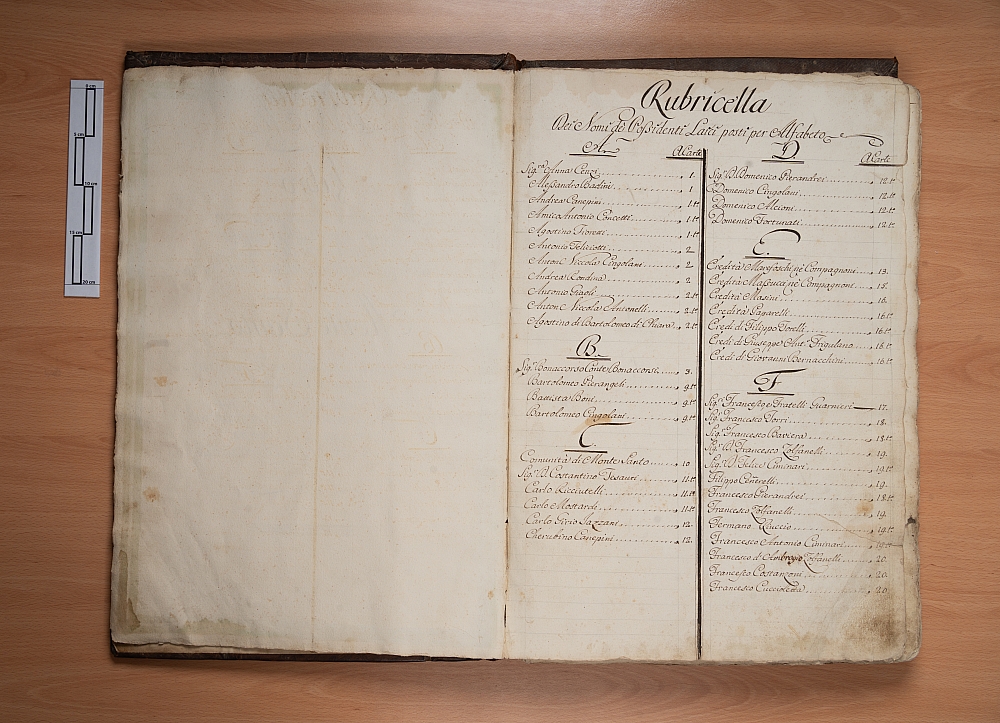 Rubricella
Dei Nomi de Possidenti Laici posti per Alfabeto
A. A Carte
Sig.ra Anna Cenci 1.
Alessandro Badini 1
Andrea Canepini 1.t.
Amico Antonio Concetti 1.t.
Agostino Fioretti 1.t.
Antonio Feliziotti 2
Anton Niccola Cingolani 2
Andrea Condina 2
Antonio 2.t.
Anton Niccola Antonelli 2.t.
Agostino di Bartolomeo di Chiara 2.t.
B.
Sig.r Bonaccorso Conte Bonaccorsi 3.
Bartolomeo Pierangeli 9.t.
Battista Boni 9.t.
Bartolomeo Cingolani 9.t.
C.
Comunità di Monte Santo 10
Sig.r D. Costantino Tesauri 11.t.
Carlo Ricciutelli 11.t.
Carlo Mostarde 11.t.
Carlo Sirio Lazzani 12.
Cherubino Canepini 12.
D. A Carte
Sig.r D. Domenico Pierandrei 12.t.
Domenico Cingolani 12.t.
Domenico Alcioni 12.t.
Domenico Fortunati 12.t.
E.
Eredità Marefoschi, ne Compagnoni 13.
Eredità Massucci ne Compagnoni 15.
Eredità Masini 16.
Eredità Paparelli 16.t.
Eredi di Filippo Torelli 16.t.
Eredi di Giuseppe Ant.o 16.t.
Eredi di Giovanni Bernacchini 16.t.
F
Sig.r Francesco, e Fratelli Guarnieri 17.
Sig.r Francesco Torri 18.
Sig.r Francesco Baviera 18.t.
Sig.r D. Francesco Zolfanelli 19.
Sig.r D. Felice Ciminari 19.t.
Filippo Cenerelli 19.
Francesco Pierandrei 18.t.
Francesco Zolfanelli 19.
Germano 19.t.
Francesco Antonio Ciminari 19.t.
Francesco d'Ambrogio Zolfanelli 20.
Francesco Costanzoni 20.
Francesco Cuccioletta 20